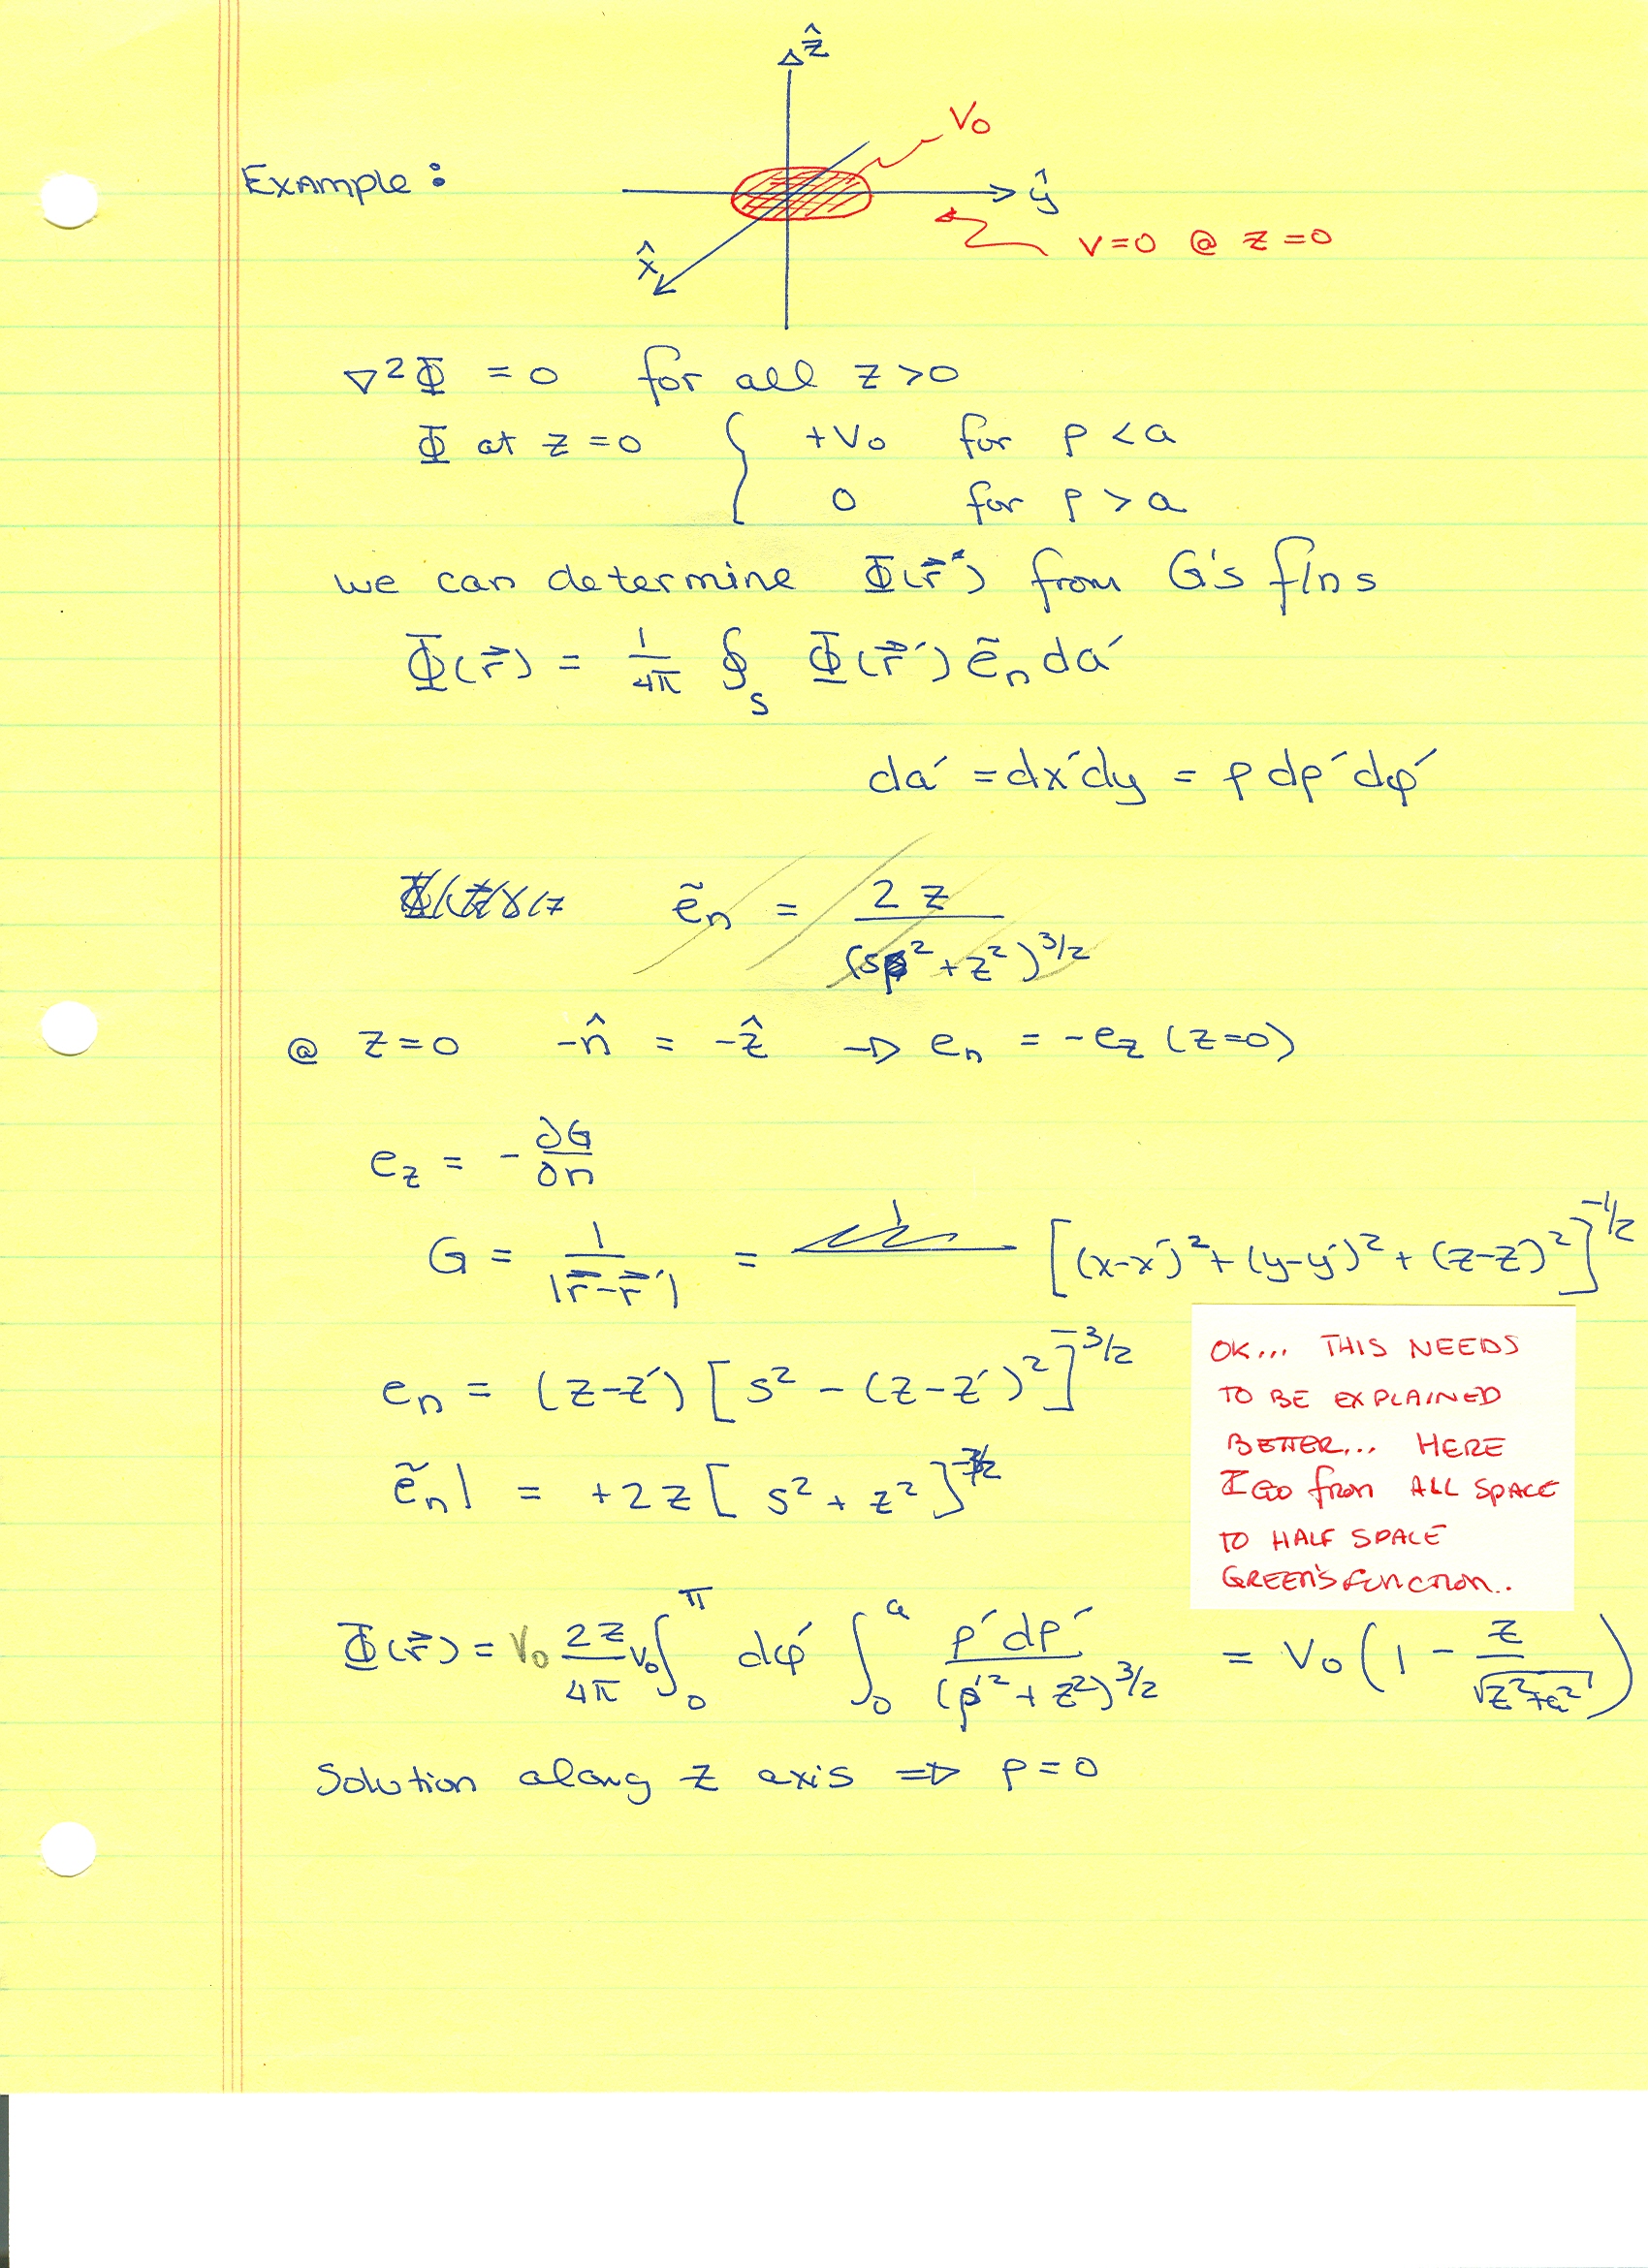 ẑ
V₀
Example:
ŷ
V=0 @ z=0
x̂
∇²Φ = 0 for all z>0
Φ at z=0 { +V₀ for ρ<a
0 for ρ>a
we can determine Φ(r⃗) from G's f/ns
Φ(r⃗) = 1/4π ∮_S Φ(r⃗′) ẽₙ da′
da′ = dx′dy = ρ dρ′dφ′
ẽₙ = 2z/(sρ² + z²)^3/2
@ z=0 -n̂ = -ẑ → eₙ = -e_z (z=0)
e_z = - ∂G/∂n
G = 1/|r⃗-r⃗′| = [(x-x′)² + (y-y′)² + (z-z′)²]^-1/2
eₙ = (z-z′) [s² - (z-z′)²]^-3/2
ẽₙ| = +2z [s² + z²]^-3/2
OK... THIS NEEDS
TO BE EXPLAINED
BETTER... HERE
I GO from ALL SPACE
TO HALF SPACE
GREEN'S FUNCTION..
Φ(r⃗) = V₀ 2z/4π V₀ ∫₀^π dφ′ ∫₀^a ρ′dρ′/(ρ′² + z²)^3/2 = V₀(1 - z/√(z²+a²))
Solution along z axis ⇒ ρ=0